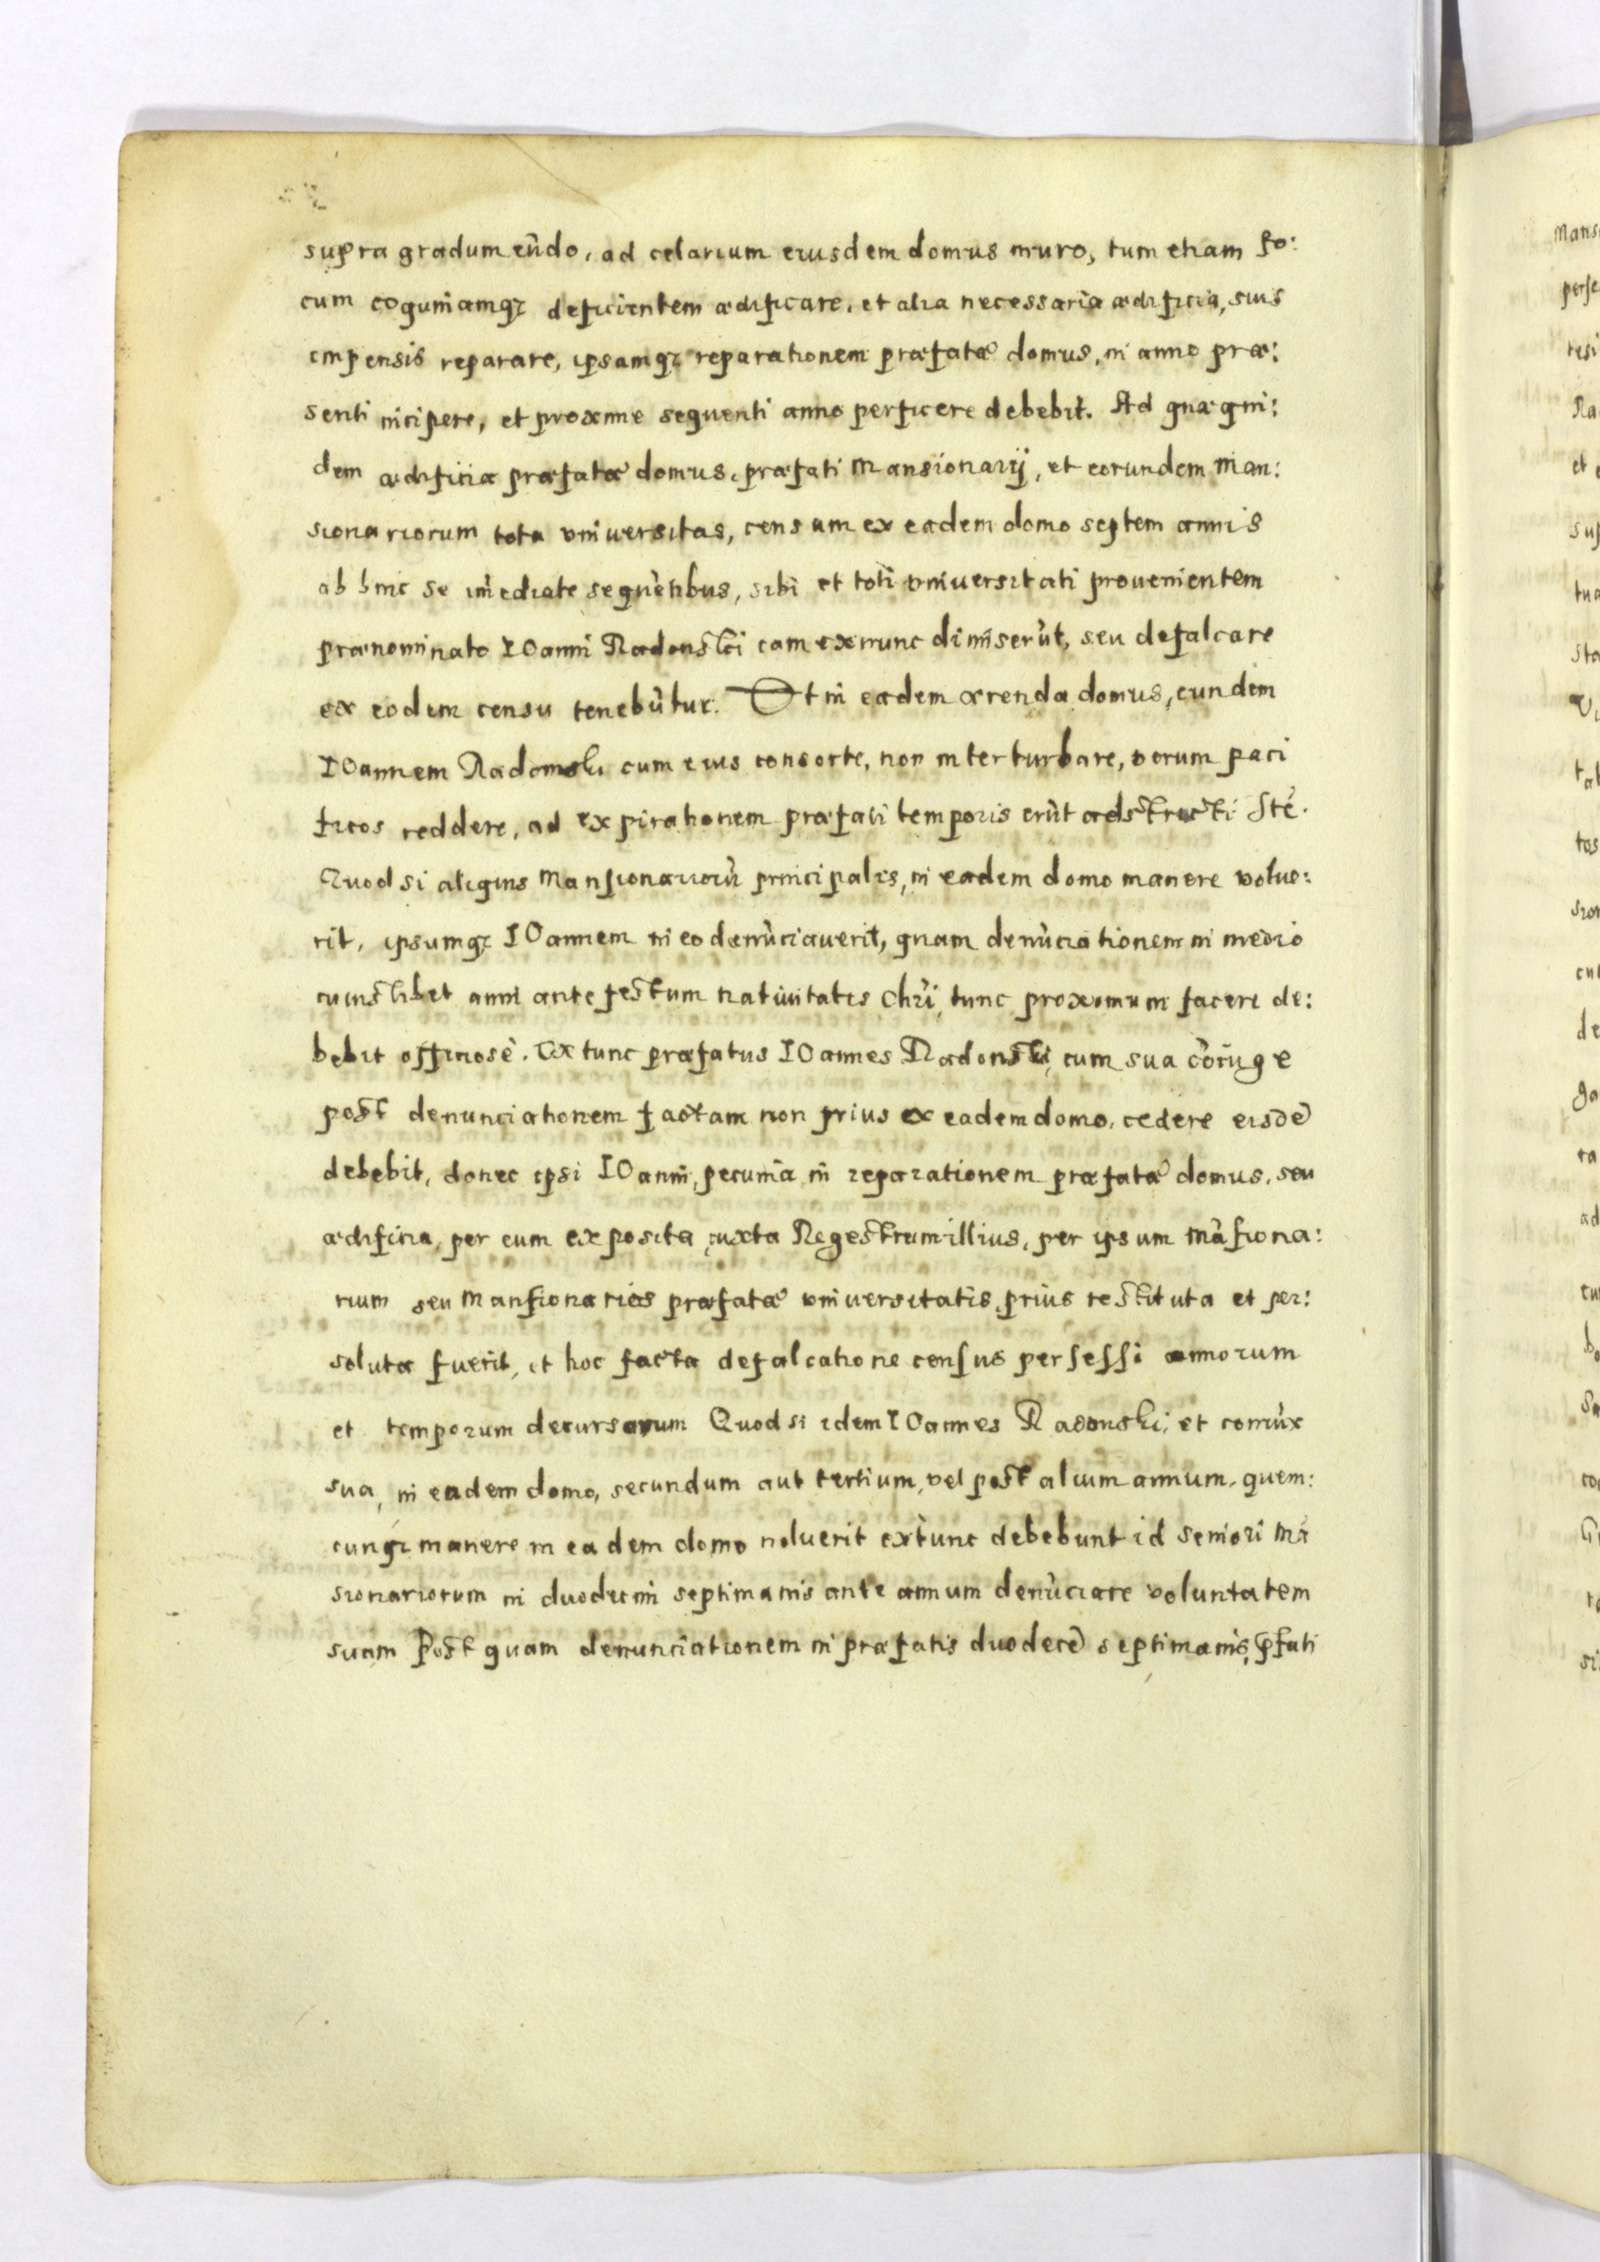 supra gradum eũdo, ad celarium eiusdem domus muro, tum etiam fo:
cum coquinamqꝫ deficientem ædificare, et alia necessaria ædificia, suis
impensis reparare, ipsamqꝫ reparationem præfatæ domus, in anno præ:
senti incipere, et proxime sequenti anno perficere debebit. Ad quæ qui:
dem ædificia præfatæ domus, præfati Mansionarij, et eorundem Man:
sionariorum tota vniuersitas, censum ex eadem domo septem annis
ab hinc se im̃ediate sequẽtibus, sibi et toti vniuersitati prouenientem
prænominato IOanni Radonski eam ex nunc dimiserũt, seu defalcare
ex eodem censu tenebũtur. Et in eadem arenda domus, eundem
IOannem Radomski cum eius consorte, non interturbare, verum paci
ficos reddere, ad expirationem præfati temporis erũt adstricti Itẽ.
Quod si aliquis Mansionariorũ principalis, in eadem domo manere volue:
rit, ipsumqꝫ IOannem in eo denũciauerit, quam denũciationem in medio
cuiuslibet anni ante festum natiuitatis Chr̃i, tunc proximum facere de:
bebit offitiosè. Ex tunc præfatus IOannes Radonski, cum sua cõiuge
post denunciationem factam non prius ex eadem domo, cedere eisdẽ
debebit, donec ipsi IOanni, pecunia in reparationem præfatæ domus, seu
ædificia, per eum exposita, iuxta Regestrum illius, per ipsum Mãsiona:
rium seu Mansionarios præfatæ vniuersitatis, prius restituta et per:
soluta fuerit, et hoc facta defalcatione census persessi annorum
et temporum decursorum Quod si idem IOannes Radonski, et coniũx
sua, in eadem domo, secundum aut tertium, vel post alium annum, quem:
cunqꝫ manere in eadem domo noluerit extunc debebunt id seniori Mã
sionariorum in duodecim septimanis ante annum denũciare voluntatem
suam Post quam denunciationem in præfatis duodecẽ septimanis, p̃fati